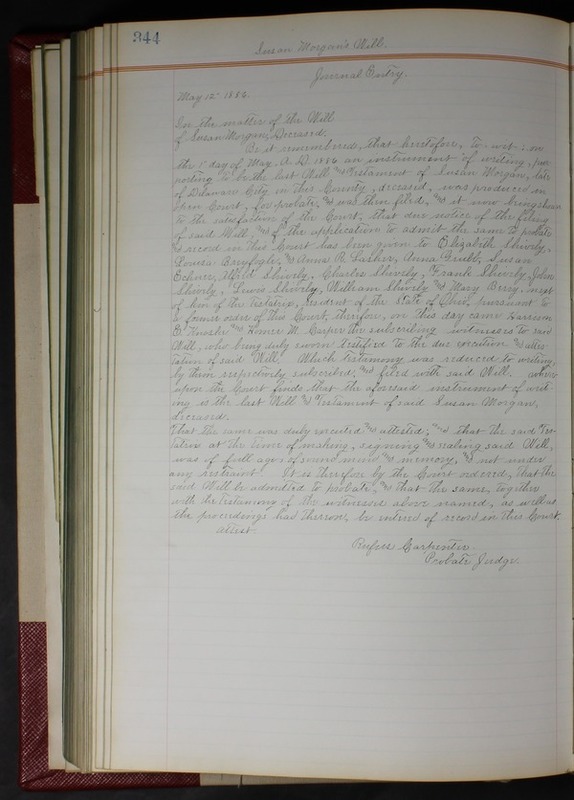 344
Susan Morgan's Will.
Journal Entry.
May 12" 1886.
In the matter of the Will
of Susan Morgan, Deceased.
Be it remembered, that heretofore, to-wit: on
the 1" day of May, A. D. 1886 an instrument of writing, pur-
porting to be the last Will and Testament of Susan Morgan, late
of Delaware City, in this County, deceased, was produced in
open Court, for probate, and was then filed, and it now being shown
to the satisfaction of the Court, that due notice of the filing
of said Will, and of the application to admit the same to probate
and record in this Court has been given to Elizabeth Shively,
Louisa and Anna R. Lasher, Anna Grubb, Susan
Alfred Shively, Charles Shively, Frank Shively, John
Shively, Lewis Shively, William Shively and Mary Berry, next
of kin of the Testatrix, resident of the State of Ohio, pursuant to
a former order of this Court, therefore, on this day came Harrison
and Homer M. Carper the subscribing witnesses to said
Will, who being duly sworn testified to the due execution and attes-
tation of said Will. Which testimony was reduced to writing,
by them respectively subscribed, and filed with said Will. Where-
upon the Court finds that the aforesaid instrument of writ-
ing is the last Will and Testament of said Susan Morgan,
deceased.
That the same was duly executed and attested; and that the said Tes-
tatrix at the time of making, signing and sealing said Will,
was of full age, of sound mind and memory, and not under
any restraint. It is therefore by the Court ordered, that the
said Will be admitted to probate, and that the same, together
with the testimony of the witnesses above named, as well as
the proceedings had thereon, be entered of record in this Court.
attest.
Rufus Carpenter
Probate Judge.